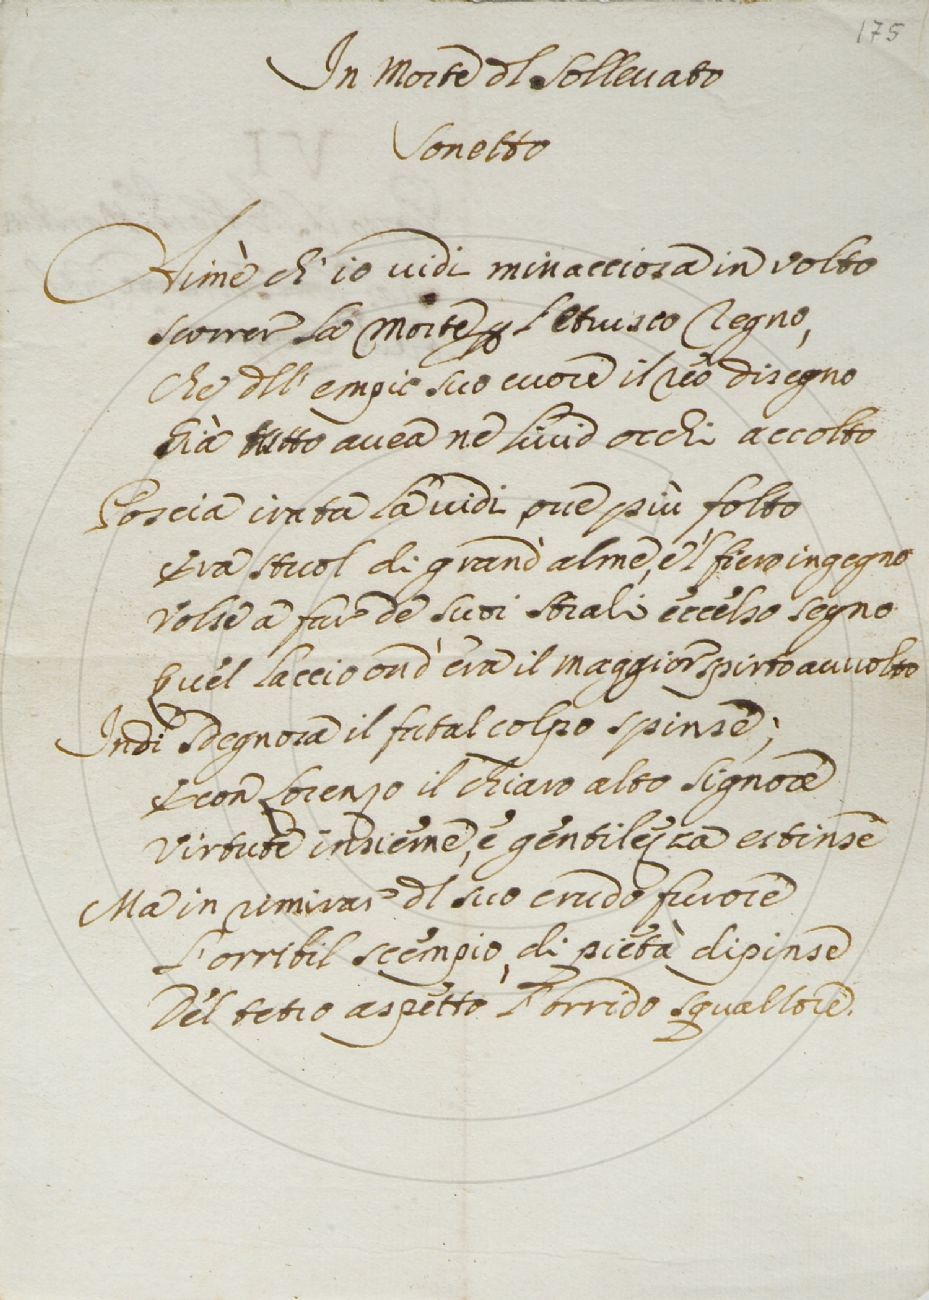 175
In Morte dl Sollevato
Sonetto
Aimè ch' io uidi minacciosa in volto
scorrer la Morte p l'Etrusco Regno,
che dll' empio suo cuore il reo disegno
Già tutto auea ne liuid occhi accolto
Poscia irata la uidi oue più folto
Era stuol di grand' alme, e 'l fiero ingegno
Volse a far de suoi strali eccelso segno
Quel laccio ond' era il maggior spirto auuolto
Indi sdegnosa il fatal colpo spinse;
E con Lorenzo il chiaro alto Signore
Virtute insieme, e gentilezza estinse
Ma in rimirar dl suo crudo furore
L'orribil scempio, di pietà dipinse
Del tetro aspetto l'orrido squallore.